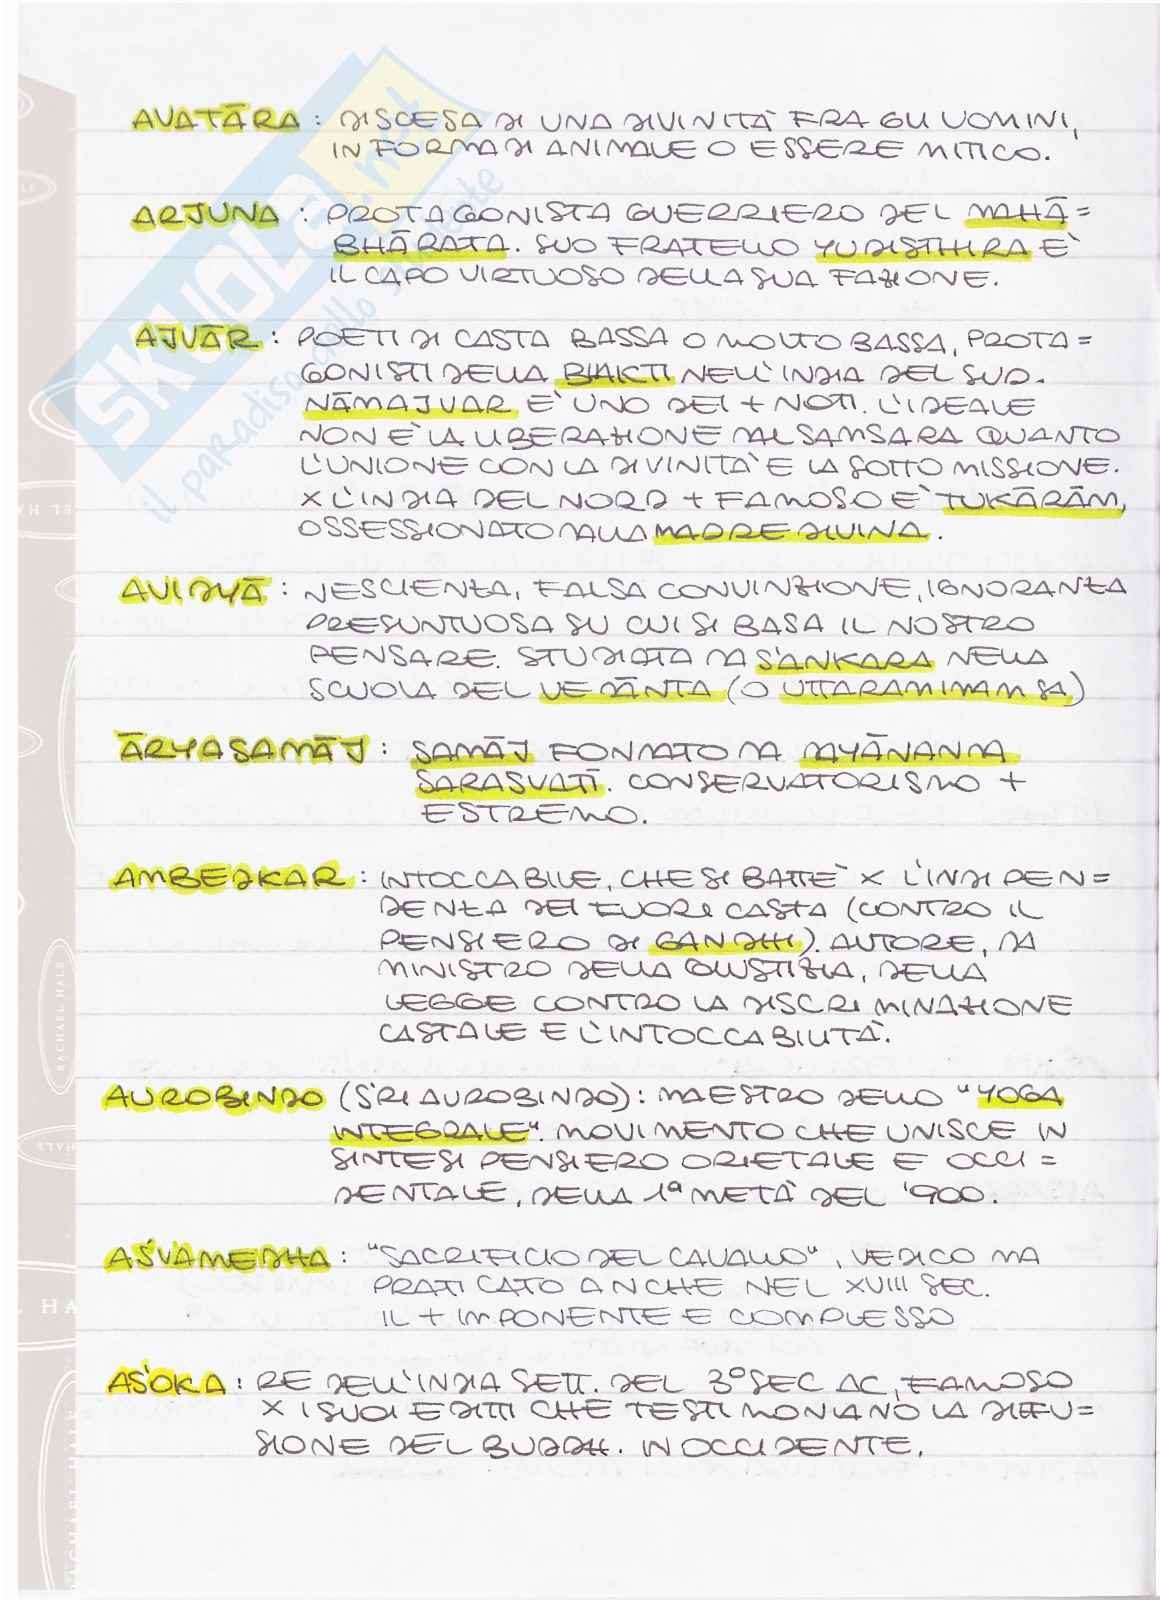 AVATĀRA : DISCESA DI UNA DIVINITÀ FRA GLI UOMINI,
IN FORMA DI ANIMALE O ESSERE MITICO.
ARJUNA : PROTAGONISTA GUERRIERO DEL MAHĀ=
BHĀRATA. SUO FRATELLO YUDISTHIRA E'
IL CAPO VIRTUOSO DELLA SUA FAZIONE.
AJVĀR : POETI DI CASTA BASSA O MOLTO BASSA, PROTA=
GONISTI DELLA BHAKTI NELL'INDIA DEL SUD.
NĀMAJVAR E' UNO DEI + NOTI. L'IDEALE
NON E' LA LIBERAZIONE DAL SAMSARA QUANTO
L'UNIONE CON LA DIVINITÀ E LA SOTTOMISSIONE.
X L'INDIA DEL NORD + FAMOSO E' TUKĀRĀM,
OSSESSIONATO DALLA MADRE DIVINA.
AVIDYĀ : NESCIENZA, FALSA CONVINZIONE, IGNORANZA
PRESUNTUOSA SU CUI SI BASA IL NOSTRO
PENSARE. STUDIATA DA S'ANKARA NELLA
SCUOLA DEL VEDĀNTA (O UTTARAMIMAMSA)
ĀRYASAMĀJ : SAMĀJ FONDATO DA DYĀNANDA
SARASVATĪ. CONSERVATORISMO +
ESTREMO.
AMBEDKAR : INTOCCABILE, CHE SI BATTÈ X L'INDIPEN=
DENZA DEI FUORI CASTA (CONTRO IL
PENSIERO DI GANDHI). AUTORE, DA
MINISTRO DELLA GIUSTIZIA, DELLA
LEGGE CONTRO LA DISCRIMINAZIONE
CASTALE E L'INTOCCABILITÀ.
AUROBINDO (S'RI AUROBINDO) : MAESTRO DELLO "YOGA
INTEGRALE". MOVIMENTO CHE UNISCE IN
SINTESI PENSIERO ORIETALE E OCCI=
DENTALE, DELLA 1ª METÀ DEL '900.
AS'VAMEDHA : "SACRIFICIO DEL CAVALLO", VEDICO MA
PRATICATO ANCHE NEL XVIII SEC.
IL + IMPONENTE E COMPLESSO
AS'OKA : RE DELL'INDIA SETT. DEL 3° SEC AC, FAMOSO
X I SUOI EDITTI CHE TESTIMONIANO LA DIFFU=
SIONE DEL BUDDH. IN OCCIDENTE,
SKUOLA.net
il paradiso dello studente
RACHAEL HALE